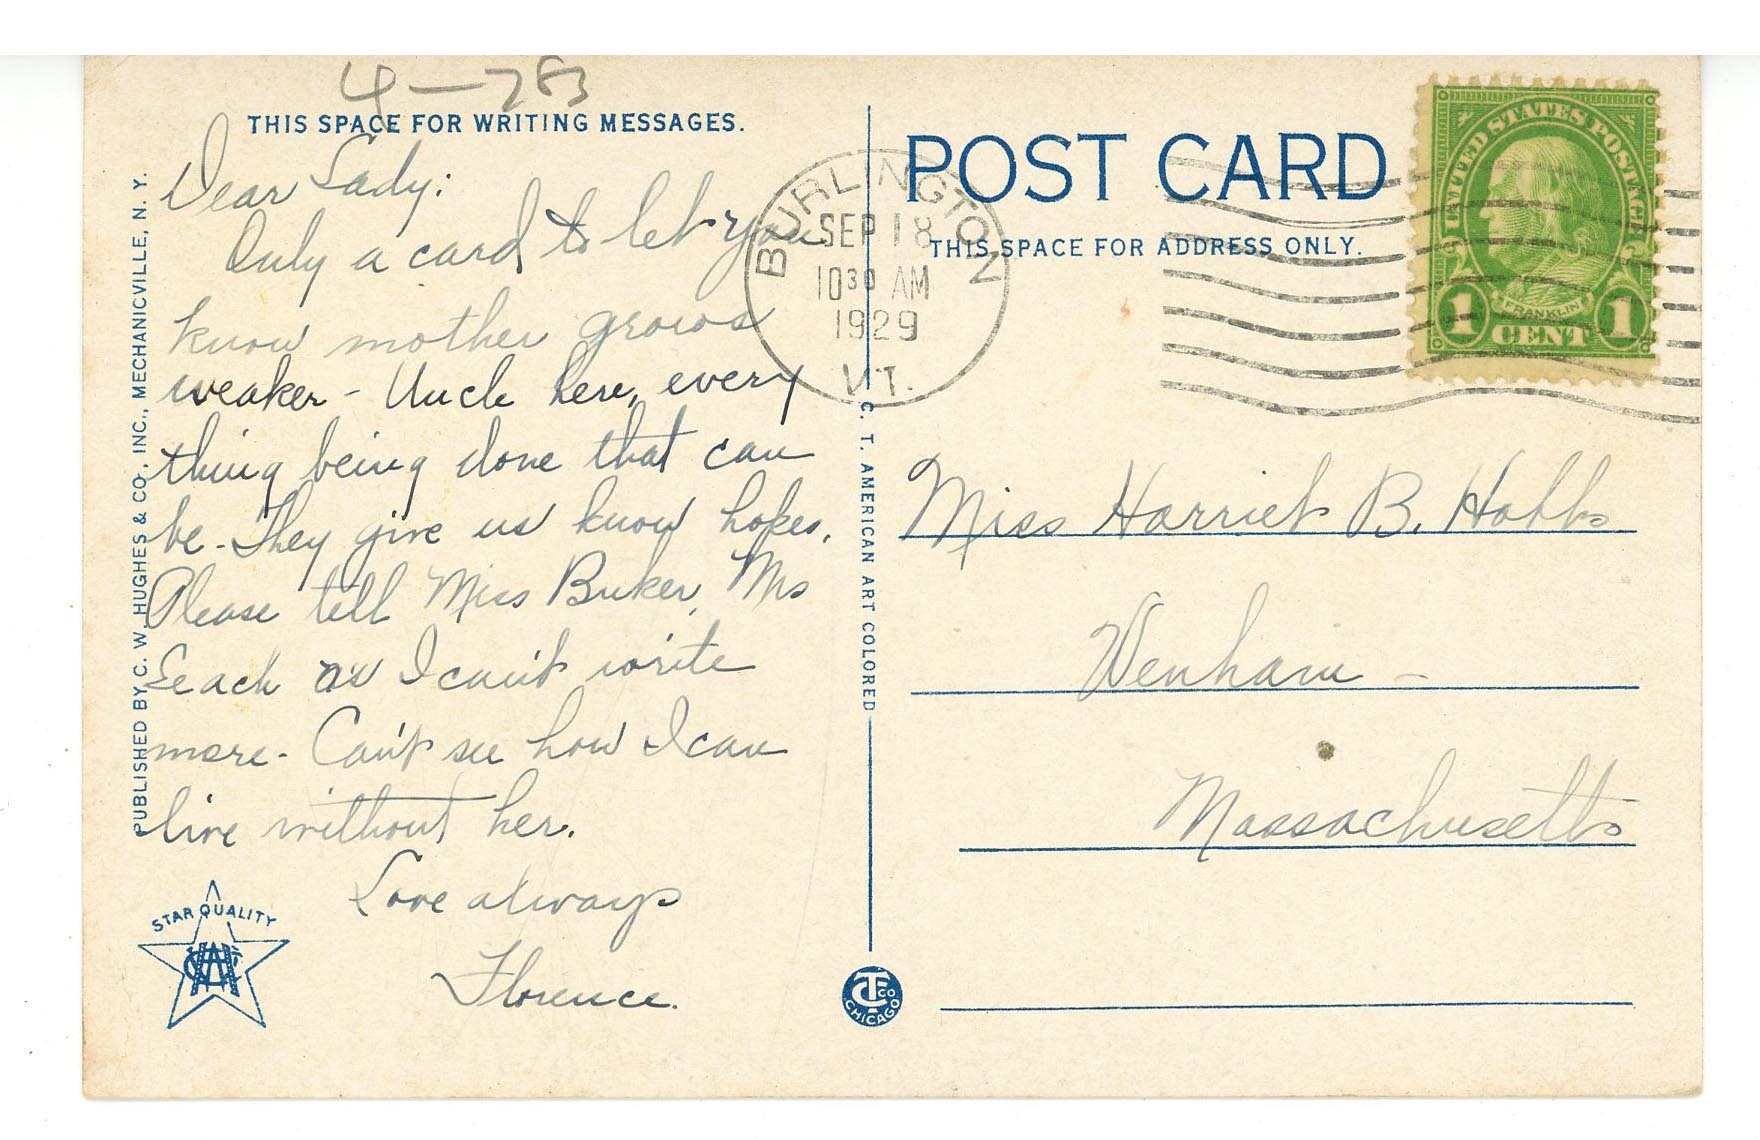 4-28
THIS SPACE FOR WRITING MESSAGES.
Dear Lady:
Only a card to let you
know mother grows
weaker - Uncle here, every
thing being done that can
be. They give us know hopes.
Please tell Miss Buker, Mrs
Leach as I can't write
more - Can't see how I can
live without her.
Love always
Florence.
PUBLISHED BY C. W. HUGHES & CO., INC., MECHANICVILLE, N. Y.
STAR QUALITY
C. T. AMERICAN ART COLORED
CTCO
CHICAGO
BURLINGTON
SEP 18
10 30 AM
1929
VT.
POST CARD
THIS SPACE FOR ADDRESS ONLY.
UNITED STATES POSTAGE
FRANKLIN
1 CENT 1
Miss Harriet B. Hobbs
Wenham -
Massachusetts